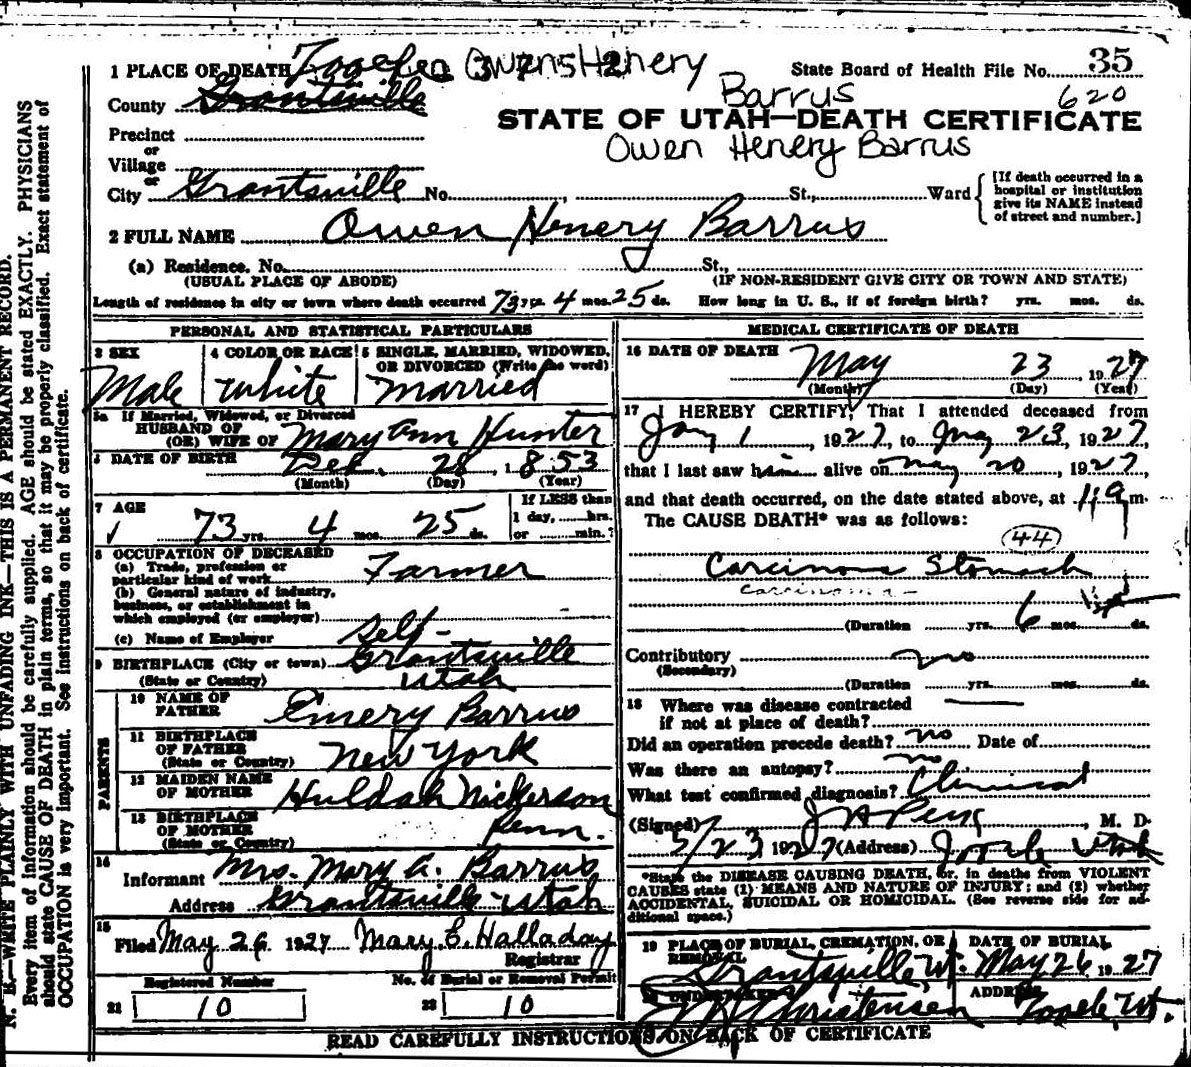 35
1 PLACE OF DEATH Tooele Owens Henery State Board of Health File No. 35
Barrus 620
County Grantsville
STATE OF UTAH—DEATH CERTIFICATE
Precinct
Owen Henery Barrus
or
Village
or
City Grantsville No. St., Ward
[If death occurred in a
hospital or institution
give its NAME instead
of street and number.]
2 FULL NAME Owen Henery Barrus
(a) Residence. No. St.,
(USUAL PLACE OF ABODE) (IF NON-RESIDENT GIVE CITY OR TOWN AND STATE)
Length of residence in city or town where death occurred 73 yrs. 4 mos. 25 ds. How long in U. S., if of foreign birth? yrs. mos. ds.
PERSONAL AND STATISTICAL PARTICULARS
3 SEX
Male
4 COLOR OR RACE
White
5 SINGLE, MARRIED, WIDOWED,
OR DIVORCED (Write the word)
Married
5a If Married, Widowed, or Divorced
HUSBAND OF
(OR) WIFE OF Mary Ann Hunter
DATE OF BIRTH Dec. 28, 1853
(Month) (Day) (Year)
7 AGE
73 yrs. 4 mos. 25 ds.
If LESS than
1 day, hrs.
or min.?
8 OCCUPATION OF DECEASED
(a) Trade, profession or
particular kind of work Farmer
(b) General nature of industry,
business, or establishment in
which employed (or employer)
(c) Name of Employer Self-
9 BIRTHPLACE (City or town) Grantsville
(State or Country) Utah
PARENTS
10 NAME OF
FATHER Emery Barrus
11 BIRTHPLACE
OF FATHER New York
(State or Country)
12 MAIDEN NAME
OF MOTHER Huldah Nickerson
13 BIRTHPLACE
OF MOTHER Penn.
(State or Country)
14
Informant Mrs. Mary A. Barrus
Address Grantsville Utah
15
Filed May 26 1927 Mary E. Halladay
Registrar
Registered Number No. of Burial or Removal Permit
21 10 22 10
MEDICAL CERTIFICATE OF DEATH
16 DATE OF DEATH May 23, 1927
(Month) (Day) (Year)
17 I HEREBY CERTIFY, That I attended deceased from
Jany 1, 1927, to May 23, 1927,
that I last saw him alive on May 20, 1927,
and that death occurred, on the date stated above, at m.
The CAUSE DEATH* was as follows:
(44)
Carcinoma Stomach
carcinoma-
(Duration yrs. 6 mos. ds.
Contributory no
(Secondary)
(Duration yrs. mos. ds.
18 Where was disease contracted
if not at place of death?
Did an operation precede death? no Date of
Was there an autopsy? no
What test confirmed diagnosis? Clinical
(Signed) , M. D.
5/23 1927 (Address) Tooele Utah
*State the DISEASE CAUSING DEATH, or, in deaths from VIOLENT
CAUSES state (1) MEANS AND NATURE OF INJURY; and (2) whether
ACCIDENTAL, SUICIDAL OR HOMICIDAL. (See reverse side for ad-
ditional space.)
19 PLACE OF BURIAL, CREMATION, OR
REMOVAL
Grantsville, Ut.
DATE OF BURIAL
May 26 1927
UNDERTAKER
Christensen
ADDRESS
Tooele, Ut.
READ CAREFULLY INSTRUCTIONS ON BACK OF CERTIFICATE
N. B.—WRITE PLAINLY WITH UNFADING INK—THIS IS A PERMANENT RECORD.
Every item of information should be carefully supplied. AGE should be stated EXACTLY. PHYSICIANS
should state CAUSE OF DEATH in plain terms, so that it may be properly classified. Exact statement of
OCCUPATION is very important. See instructions on back of certificate.